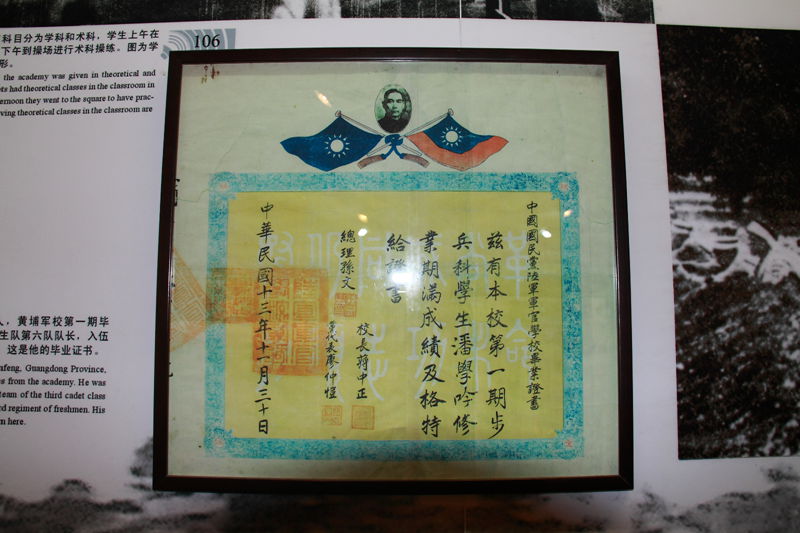 科目分为学科和术科，学生上午在
下午到操场进行术科操练。图为学
形。
the academy was given in theoretical and
ets had theoretical classes in the classroom in
ernoon they went to the square to have prac-
ving theoretical classes in the classroom are
106
中國國民黨陸軍軍官學校畢業證書
茲有本校第一期步
兵科學生潘學吟修
業期滿成績及格特
給證書
總理孫文
校長蔣中正
黨代表廖仲愷
中華民國十三年十一月三十日
人，黄埔军校第一期毕
生队第六队队长，入伍
这是他的毕业证书。
nfeng, Guangdong Province,
es from the academy. He was
team of the third cadet class
rd regiment of freshmen. His
n here.